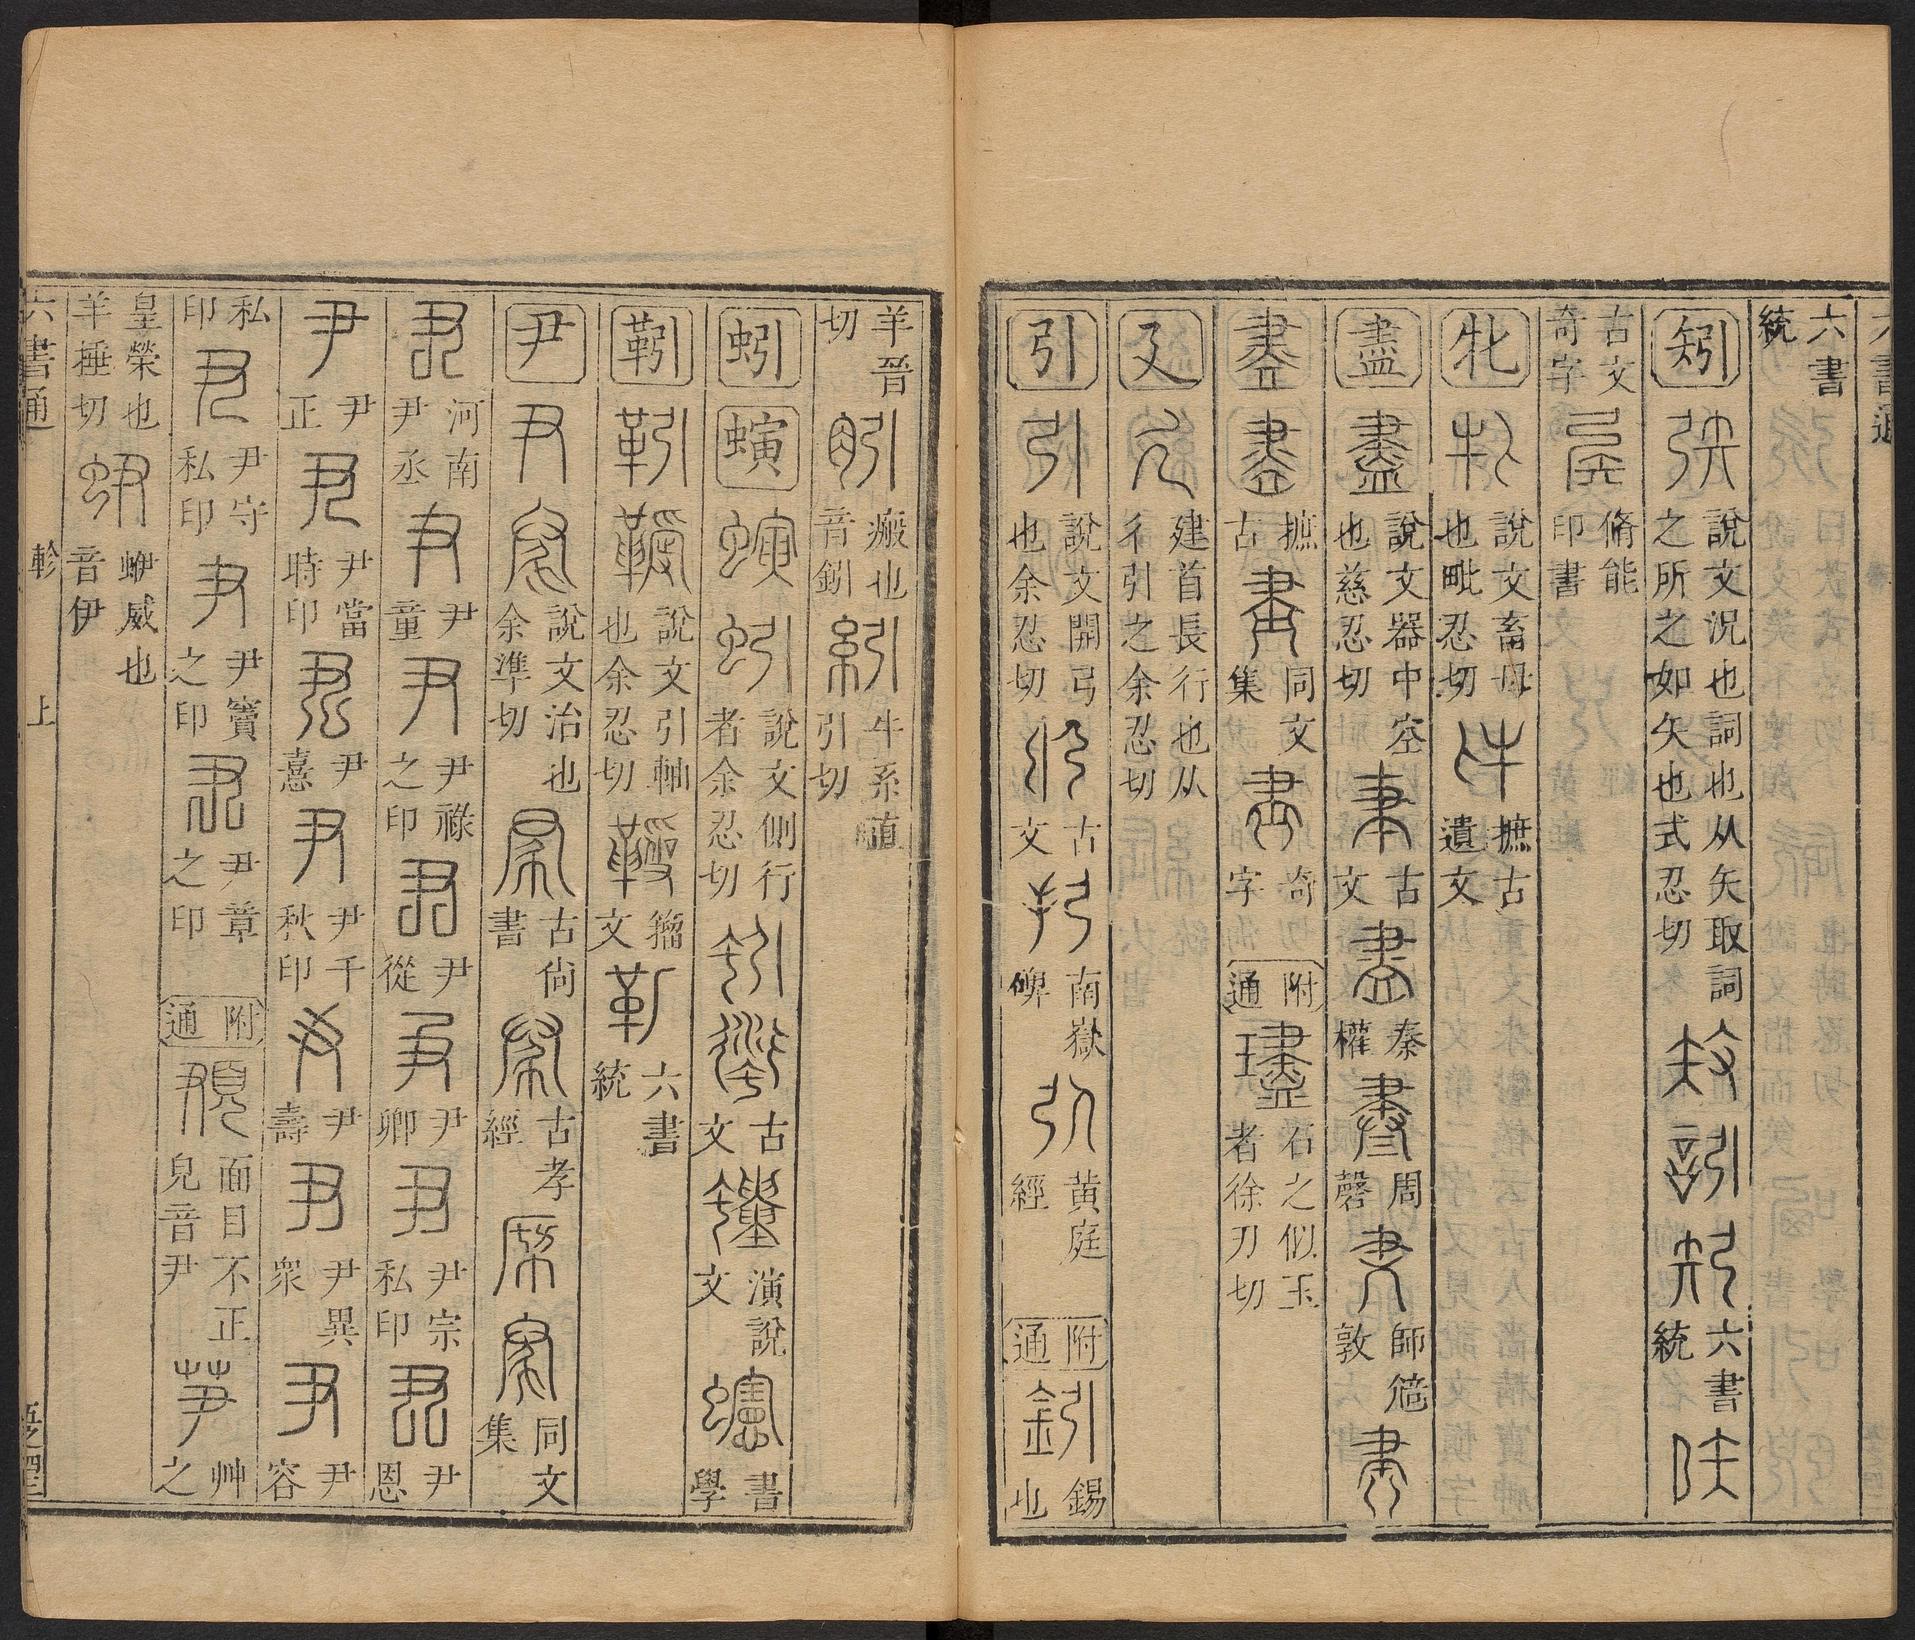 六書通
六書統
矧 說文況也詞也从矢取詞之所之如矢也式忍切 六書統
古文奇字 脩能印書
牝 說文畜母也毗忍切 摭古遺文
盡 說文器中空也慈忍切 古文 秦權 周磬 師𩛥敦
𦘔 摭古 同文集 奇字 附通 石之似玉者徐刃切
廴 建首長行也从彳引之余忍切
引 說文開弓也余忍切 古文 南嶽碑 黃庭經 附通 錫也
羊晉切 瘢也音釰 牛系直引切
蚓 螾 說文側行者余忍切 古文 演說文 書學
靷 說文引軸也余忍切 籀文 六書統
尹 說文治也余準切 古尚書 古孝經 同文集
河南尹丞 尹童 尹祿之印 尹從 尹卿 尹宗私印 尹恩
尹正 尹當時印 尹憙 尹千秋印 尹壽 尹異衆 尹容
私印 尹守私印 尹竇之印 尹章之印 附通 面目不正皃音尹 艸之
皇榮也羊捶切 蛜威也音伊
六書通 軫 上